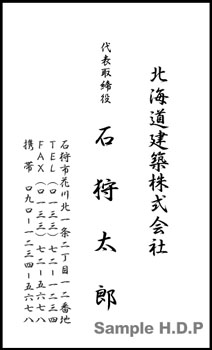 北海道建築株式会社
代表取締役
石狩太郎
石狩市花川北一条二丁目一二番地
TEL(〇一三三)七二-一二三四
FAX(〇一三三)七二-五六七八
携帯 〇九〇-一二三四-五六七八
Sample H.D.P